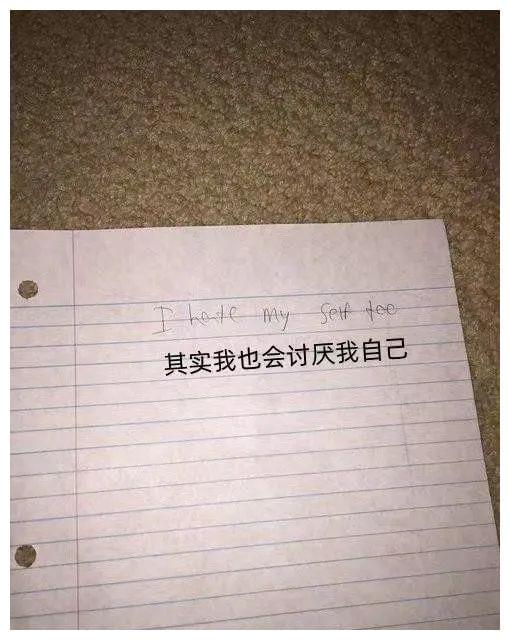 I hate my self tee
其实我也会讨厌我自己